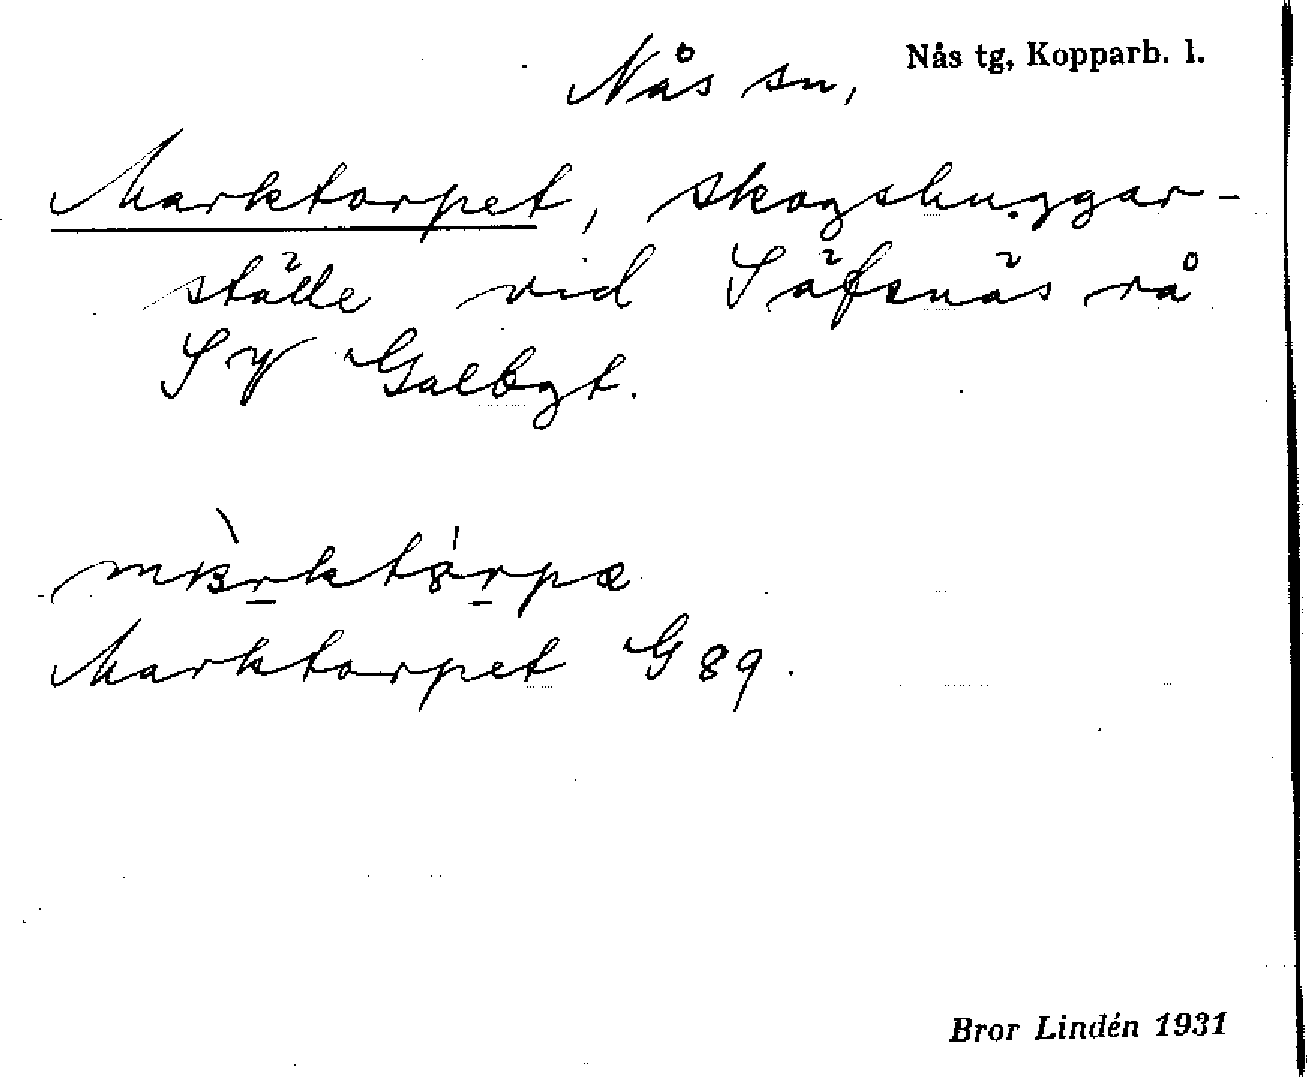 Nås sn, Nås tg, Kopparb. l.
Marktorpet, skogshuggar-
ställe vid Säfsnäs rå
SV Galbgt.
Marktorpet G 89.
Bror Lindén 1931